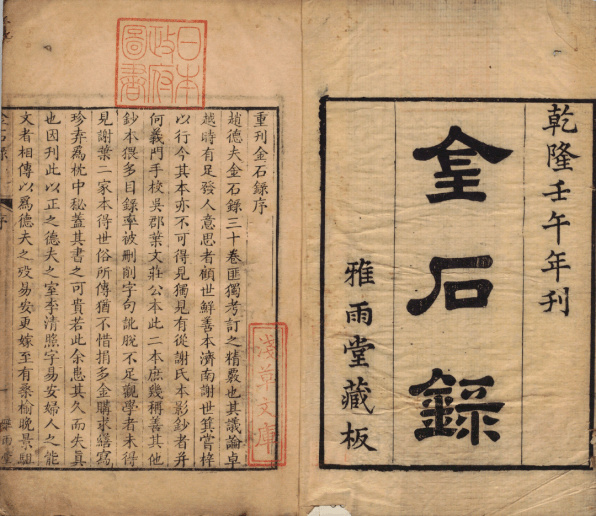 乾隆壬午年刊
金石錄
雅雨堂藏板
日本
政府
圖書
重刊金石錄序
趙德夫金石錄三十卷匪獨考訂之精覈也其議論卓
越時有足發人意思者顧世鮮善本濟南謝世箕嘗梓
以行今其本亦不可得見獨見有從謝氏本影鈔者并
何義門手校吳郡葉文莊公本此二本庶幾稱善其他
鈔本猥多目錄率被刪削字句訛脫不足觀學者未得
見謝葉二家本得世俗所傳猶不惜捐多金購求繕寫
珍弆爲枕中秘蓋其書之可貴若此余患其久而失真
也因刊此以正之德夫之室李清照字易安婦人之能
文者相傳以爲德夫之歿易安更嫁至有桑榆晚景駔
淺草文庫
金石錄
序
雅雨堂